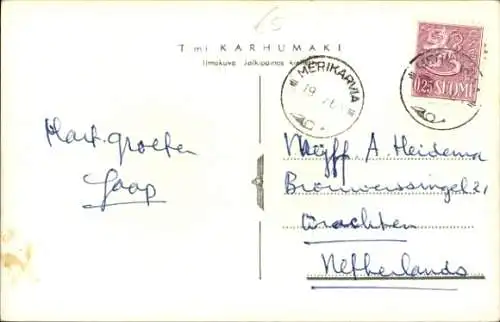 5
Tmi KARHUMÄKI
Ilmakuva Jälkipainos kielletään
MERIKARVIA
19
0.25 SUOMI
MERIKARVIA
Hart. groeten
Jaap
Mejff. A. Heidema
Brouwerssingel 21
Drachten
Netherlands